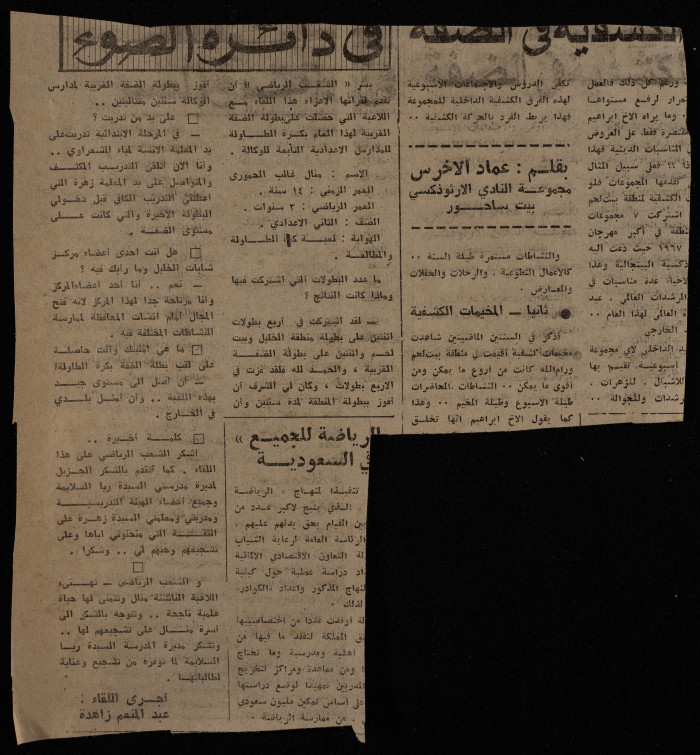 الكشفية في الضفة
ورغم كل ذلك فالعمل
لرفع مستواها
وما يراه الاخ ابراهيم
مقتصرة فقط على العروض
المناسبات الدينية فهذا
فعلى سبيل المثال
المجموعات فلو
الكشفية لمنطقة بيت لحم
اشتركت ٧ مجموعات
في أكبر مهرجان
١٩٦٧ حيث دعت اليه
عدة مناسبات في
المرشدات العالمي . عيد
العالمي لهذا العام ..
الخارجي
الداخلي لاي مجموعة
اسبوعية تقيم بها
للاشبال . للزهرات .
وللجوالة ..
تكفي الدروس والاجتماعات الاسبوعية
لهذه الفرق الكشفية الداخلية للمجموعة
فهذا يربط الفرد بالحركة الكشفية ..
بقلم : عماد الاخرس
مجموعة النادي الارثوذكسي
بيت ساحور
والنشاطات مستمرة طيلة السنة ..
كالاعمال التطوعية . والرحلات والحفلات
والمعارض .
● ثانيا — المخيمات الكشفية
أذكر في السنتين الماضيتين شاهدت
مخيمات كشفية اقيمت في منطقة بيت لحم
ورام الله كانت من اروع ما يمكن ومن
أقوى ما يمكن .. النشاطات . المحاضرات
طيلة الاسبوع وطيلة المخيم .. وهذا
كما يقول الاخ ابراهيم انها تخلق
في دائرة الضوء
يسر « الشعب الرياضي » ان
تقدم لقرائها الاعزاء هذا اللقاء مع
اللاعبة التي حصلت على بطولة الضفة
الغربية لهذا العام بكرة الطاولة
للمدارس الاعدادية التابعة للوكالة .
الاسم : منال غالب الجعبري
العمر الزمني : ١٤ سنة .
العمر الرياضي : ٣ سنوات .
الصف : الثاني الاعدادي .
الهواية : لعبة كرة الطاولة
والمطالعة .
ما عدد البطولات التي اشتركت فيها
وماذا كانت النتائج ؟
— لقد اشتركت في أربع بطولات
اثنتين على بطولة منطقة الخليل وبيت
لحم واثنتين على بطولة الضفة
الغربية ، والحمد لله فلقد فزت في
الاربع بطولات ، وكان لي الشرف أن
أفوز ببطولة المنطقة لمدة سنتين وأن
أفوز ببطولة الضفة الغربية لمدارس
الوكالة سنتين متتاليتين ..
□ على يد من تدربت ؟
— في المرحلة الابتدائية تدربت على
يد المعلمة الانسة لمياء الشعراوي ..
وانا الان أتلقى التدريب المكثف
والمتواصل على يد المعلمة زهرة التي
أعطتني التدريب الكافي قبل دخولي
البطولة الاخيرة والتي كانت على
مستوى الضفة .
□ هل أنت احدى أعضاء مركز
شابات الخليل وما رأيك فيه ؟
— نعم .. أنا أحد أعضاء المركز
وأنا مرتاحة جدا لهذا المركز لانه فتح
المجال أمام فتيات المحافظة لممارسة
النشاطات المختلفة فيه .
□ ما هي أمنيتك وانت حاصلة
على لقب بطلة الضفة بكرة الطاولة؟
— أن أصل الى مستوى جيد
بهذه اللعبة .. وأن أمثل بلدي
في الخارج .
□ كلمة أخيرة ..
أشكر الشعب الرياضي على هذا
اللقاء . كما أتقدم بالشكر الجزيل
لمديرة مدرستي السيدة ربا السلايمة
وجميع أعضاء الهيئة التدريسية
ومدربتي ومعلمتي السيدة زهرة على
الثقة التي منحوني اياها وعلى
تشجيعهم وحبهم لي .. وشكرا .
□
و الشعب الرياضي — تهنىء
اللاعبة الناشئة منال وتتمنى لها حياة
علمية ناجحة .. وتتوجه بالشكر الى
أسرة منال على تشجيعهم لها ..
وتشكر مديرة المدرسة السيدة ربا
السلايمة لما توفره من تشجيع وعناية
لطالباتها .
أجرى اللقاء :
عبد المنعم زاهدة
الرياضة للجميع »
في السعودية
تنفيذا لمنهاج « الرياضة
الذي يتيح لاكبر عدد من
القيام بحق بدنهم عليهم .
الرئاسة العامة لرعاية الشباب
التعاون الاقتصادي الالمانية
دراسة عملية حول كيفية
المنهاج المذكور واعداد «الكوادر
لذلك .
أوفدت عددا من اختصاصييها
المملكة لتفقد ما فيها من
أهلية ومدرسية وما تحتاج
ومن معاهدة ومراكز لتخريج
المدربين تمهيدا لوضع دراستها
على أساس تمكين مليون سعودي
من ممارسة الرياضة .